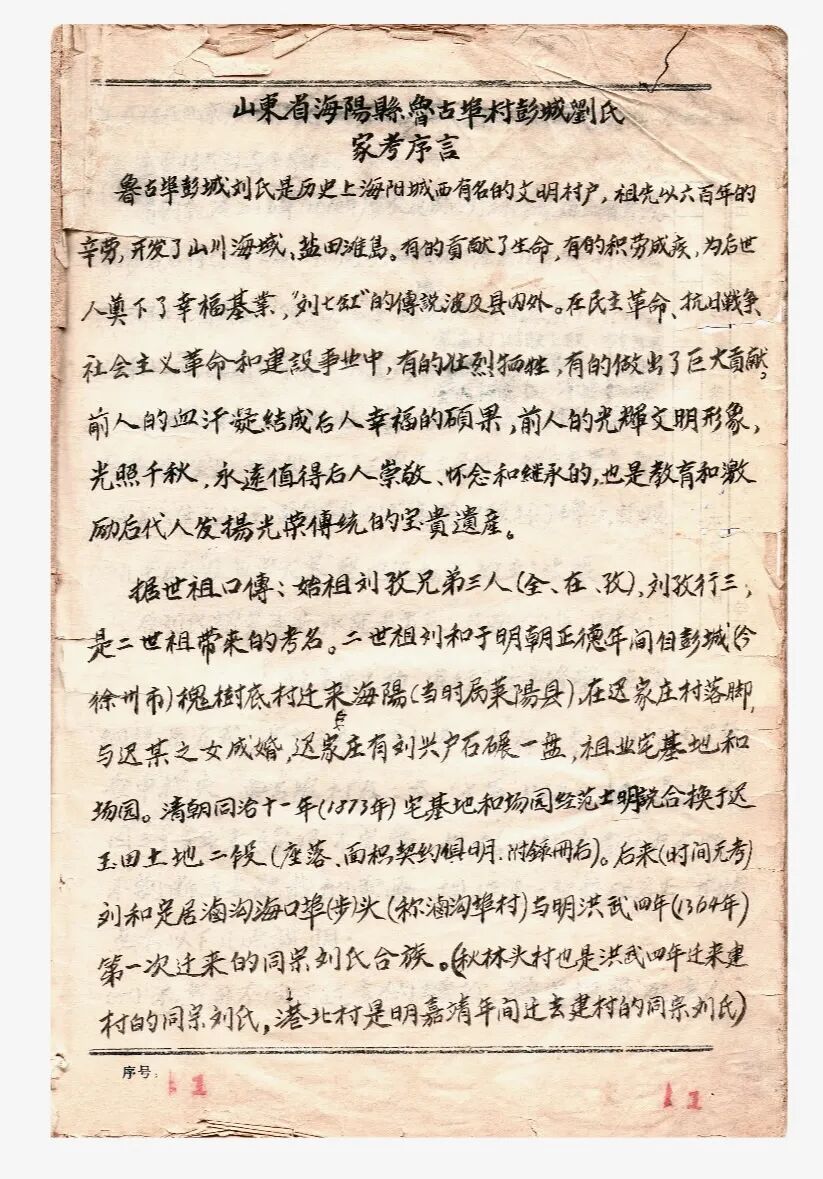 山東省海陽縣魯古埠村彭城劉氏
家考序言
魯古埠彭城刘氏是历史上海阳城西有名的文明村户，祖先以六百年的
辛劳，开发了山川海域、盐田滩島。有的貢献了生命，有的积劳成疾，为后世
人奠下了幸福基業，“刘七缸”的傳說波及县内外。在民主革命、抗日戦争
社会主义革命和建設事业中，有的壮烈牺牲，有的做出了巨大貢献，
前人的血汗凝結成后人幸福的碩果，前人的光輝文明形象，
光照千秋，永遠值得后人崇敬、怀念和継承的，也是教育和激
励后代人发揚光荣傳統的宝貴遺産。
据世祖口傳：始祖刘孜兄弟三人（全、在、孜），刘孜行三，
是二世祖带来的考名。二世祖刘和于明朝正德年间自彭城（今
徐州市）槐樹底村迁来海陽（当时局莱陽县），在迟家庄村落脚，
与迟某之女成婚，迟家庄有刘兴户石碾一盘，祖业宅基地和
场园。清朝同治十一年（1873年）宅基地和场园经范士明説合换于迟
玉田土地二段（座落、面积契约俱明，附錄册后）。后来（时间无考）
刘和定居滷沟海口埠（步）头（称滷沟埠村）与明洪武四年（1364年）
第一次迁来的同宗刘氏合族。（秋林头村也是洪武四年迁来建
村的同宗刘氏，港北村是明嘉靖年间迁去建村的同宗刘氏）
序号：
1 1